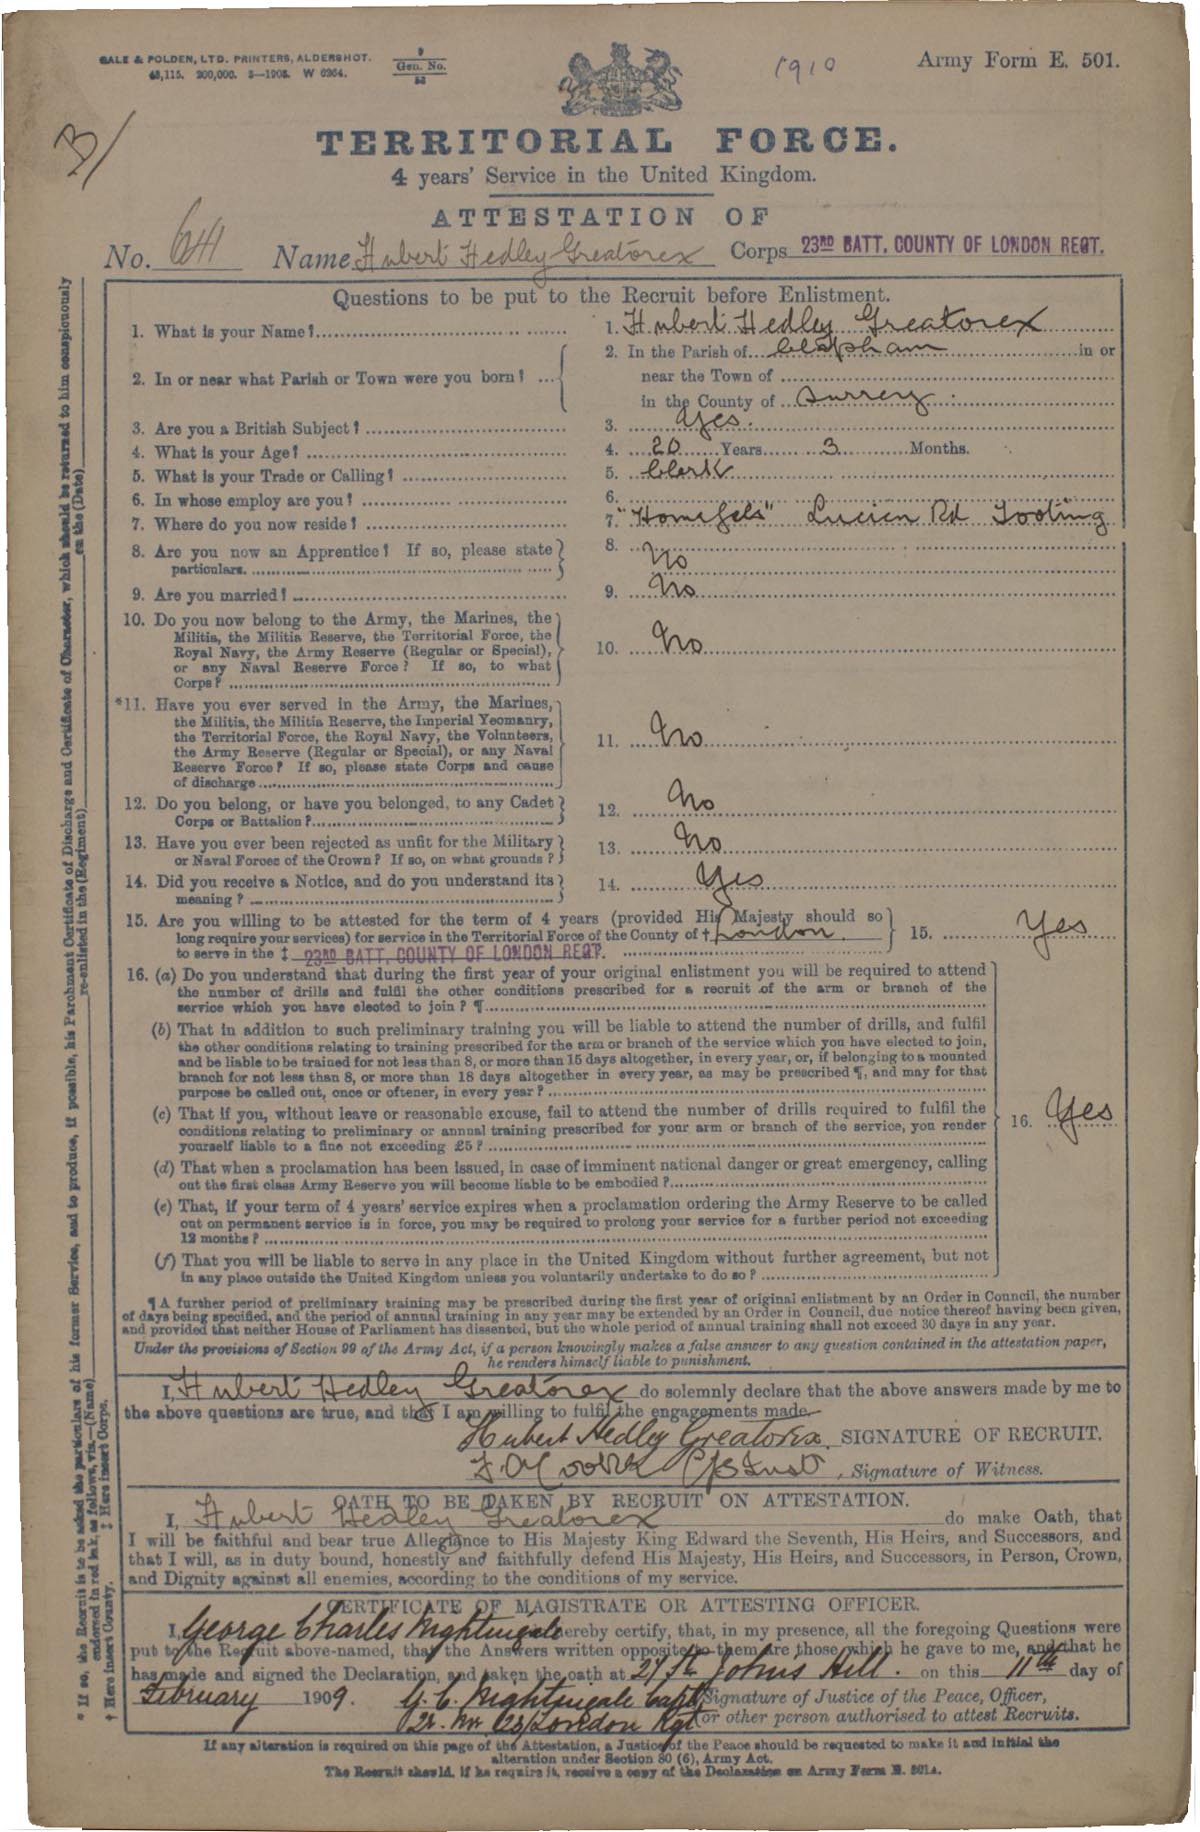 GALE & POLDEN, LTD. PRINTERS, ALDERSHOT.
45,115. 200,000. 3—1908. W 6264.
9
Gen. No.
52
1910
Army Form E. 501.
B/
TERRITORIAL FORCE.
4 years' Service in the United Kingdom.
ATTESTATION OF
No. 641 Name Hubert Hedley Greatorex Corps 23RD BATT. COUNTY OF LONDON REGT.
Questions to be put to the Recruit before Enlistment.
1. What is your Name? 1. Hubert Hedley Greatorex
2. In or near what Parish or Town were you born? 2. In the Parish of Clapham in or
near the Town of
in the County of Surrey.
3. Are you a British Subject? 3. Yes.
4. What is your Age? 4. 20 Years 3 Months.
5. What is your Trade or Calling? 5. Clerk
6. In whose employ are you? 6.
7. Where do you now reside? 7. Lucien Rd Tooting
8. Are you now an Apprentice? If so, please state 8. No
particulars.
9. Are you married? 9. No
10. Do you now belong to the Army, the Marines, the
Militia, the Militia Reserve, the Territorial Force, the
Royal Navy, the Army Reserve (Regular or Special), 10. No
or any Naval Reserve Force? If so, to what
Corps?
*11. Have you ever served in the Army, the Marines,
the Militia, the Militia Reserve, the Imperial Yeomanry,
the Territorial Force, the Royal Navy, the Volunteers, 11. No
the Army Reserve (Regular or Special), or any Naval
Reserve Force? If so, please state Corps and cause
of discharge
12. Do you belong, or have you belonged, to any Cadet 12. No
Corps or Battalion?
13. Have you ever been rejected as unfit for the Military 13. No
or Naval Forces of the Crown? If so, on what grounds?
14. Did you receive a Notice, and do you understand its 14. Yes
meaning?
15. Are you willing to be attested for the term of 4 years (provided His Majesty should so
long require your services) for service in the Territorial Force of the County of † London. 15. Yes
to serve in the ‡ 23RD BATT. COUNTY OF LONDON REGT.
16. (a) Do you understand that during the first year of your original enlistment you will be required to attend
the number of drills and fulfil the other conditions prescribed for a recruit of the arm or branch of the
service which you have elected to join? ¶
(b) That in addition to such preliminary training you will be liable to attend the number of drills, and fulfil
the other conditions relating to training prescribed for the arm or branch of the service which you have elected to join,
and be liable to be trained for not less than 8, or more than 15 days altogether, in every year, or, if belonging to a mounted
branch for not less than 8, or more than 18 days altogether in every year, as may be prescribed ¶, and may for that
purpose be called out, once or oftener, in every year?
(c) That if you, without leave or reasonable excuse, fail to attend the number of drills required to fulfil the 16. Yes
conditions relating to preliminary or annual training prescribed for your arm or branch of the service, you render
yourself liable to a fine not exceeding £5?
(d) That when a proclamation has been issued, in case of imminent national danger or great emergency, calling
out the first class Army Reserve you will become liable to be embodied?
(e) That, if your term of 4 years' service expires when a proclamation ordering the Army Reserve to be called
out on permanent service is in force, you may be required to prolong your service for a further period not exceeding
12 months?
(f) That you will be liable to serve in any place in the United Kingdom without further agreement, but not
in any place outside the United Kingdom unless you voluntarily undertake to do so?
¶ A further period of preliminary training may be prescribed during the first year of original enlistment by an Order in Council, the number
of days being specified, and the period of annual training in any year may be extended by an Order in Council, due notice thereof having been given,
and provided that neither House of Parliament has dissented, but the whole period of annual training shall not exceed 30 days in any year.
Under the provisions of Section 99 of the Army Act, if a person knowingly makes a false answer to any question contained in the attestation paper,
he renders himself liable to punishment.
I, Hubert Hedley Greatorex do solemnly declare that the above answers made by me to
the above questions are true, and that I am willing to fulfil the engagements made.
Hubert Hedley Greatorex. SIGNATURE OF RECRUIT.
Signature of Witness.
OATH TO BE TAKEN BY RECRUIT ON ATTESTATION.
I, Hubert Hedley Greatorex do make Oath, that
I will be faithful and bear true Allegiance to His Majesty King Edward the Seventh, His Heirs, and Successors, and
that I will, as in duty bound, honestly and faithfully defend His Majesty, His Heirs, and Successors, in Person, Crown,
and Dignity against all enemies, according to the conditions of my service.
CERTIFICATE OF MAGISTRATE OR ATTESTING OFFICER.
I, George Charles Nightingale hereby certify, that, in my presence, all the foregoing Questions were
put to the Recruit above-named, that the Answers written opposite to them are those which he gave to me, and that he
has made and signed the Declaration, and taken the oath at 27 St. John's Hill. on this 11th day of
February 1909. G. C. Nightingale Capt. Signature of Justice of the Peace, Officer,
23/London Rgt or other person authorised to attest Recruits.
If any alteration is required on this page of the Attestation, a Justice of the Peace should be requested to make it and initial the
alteration under Section 80 (6), Army Act.
The Recruit should, if he require it, receive a copy of the Declaration on Army Form E. 501A.
* If so, the Recruit is to be asked the particulars of his former Service, and to produce, if possible, his Parchment Certificate of Discharge and Certificate of Character, which should be returned to him conspicuously
endorsed in red ink, as follows, viz.—(Name) re-enlisted in the (Regiment) on the (Date)
† Here insert County. ‡ Here insert Corps.